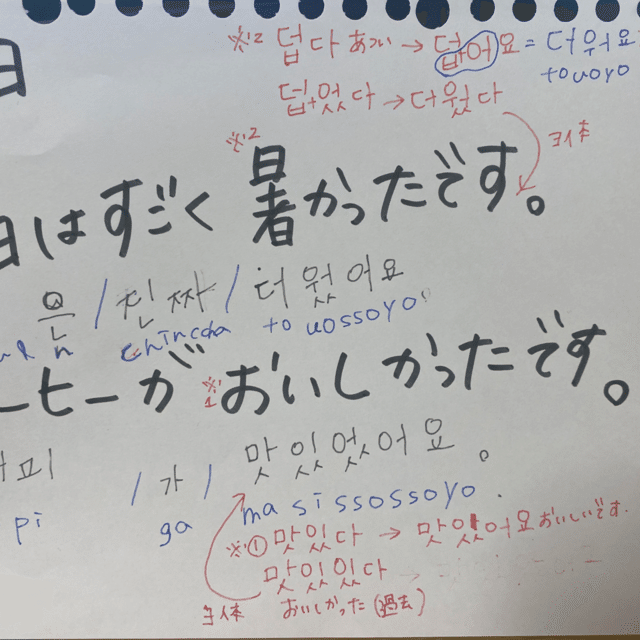 ※2 덥다 あつい → 덥어요 = 더워요
touoyo
덥었다 → 더웠다
ヨ体
※2
日はすごく 暑かったです。
은 / 진짜 / 더웠어요
n chinccha to uossoyo
ーヒーが ※1 おいしかったです。
피 / 가 / 맛있었어요。
pi ga ma sissossoyo.
※① 맛있다 → 맛있어요 おいしいです.
맛있있다 →
ヨ体 おいしかった (過去)